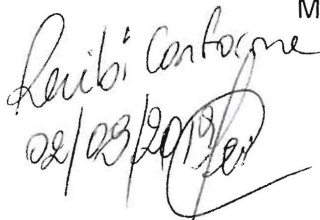 M
Recibi Conforme
02/09/2019